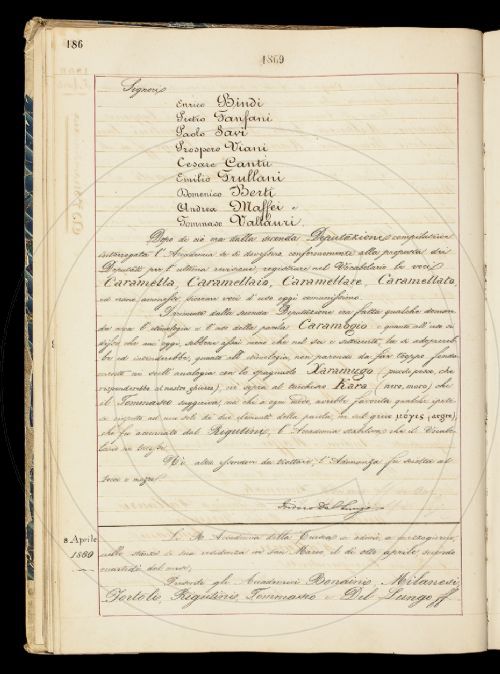 186
1869
Signori
Enrico Bindi
Pietro Fanfani
Paolo Savi
Prospero Viani
Cesare Cantù
Emilio Frullani
Domenico Berti
Andrea Maffei e
Tommaso Vallauri.
Dopo di ciò ma dalla seconda Deputazione compilatrice
interrogata l'Accademia se si dovesse conformemente alla proposta dei
Deputati per l'ultima revisione, registrare nel Vocabolario le voci
Caramella, Caramellaio, Caramellare, Caramellato,
ed tutte d'uso oggi comunissimo.
dalla seconda Deputazione era fatta qualche doman-
da circa l'etimologia e l'uso della parola Caramogio e quanto all'uso si
disse che anc'oggi, sebbene assai meno che nel sei e settecento, la si adoprereb-
be ed intenderebbe; quanto all'etimologia, non parendo da far troppo fonda-
mento in nell'analogia con lo spagnuolo Xaramugo (piccolo pesce, che
risponderebbe al nostro ghiozzo), nè sopra al turchesco Kara (nero, moro) che
il Tommaseo suggeriva; ma che a ogni modo, avrebbe favorita qualche ipote-
si rispetto ad uno solo dei due elementi della parola, nè sul greco μόγις (aegre),
che fu accennato dal Rigutini, l'Accademia stabiliva che il Vocabo-
lario ne
Nè altro essendovi da trattare, l'Adunanza fu sciolta al
tocco e mezzo.
Isidoro Del Lungo
8 Aprile
1869
La R. Accademia della Crusca si adunò a mezzogiorno,
nelle stanze di sua residenza in San Marco, il dì otto aprile mille ottocento
sessantanove.
Presenti gli Accademici Bonaini, Milanesi,
Tortoli, Rigutini, Tommaseo e Del Lungo ff.